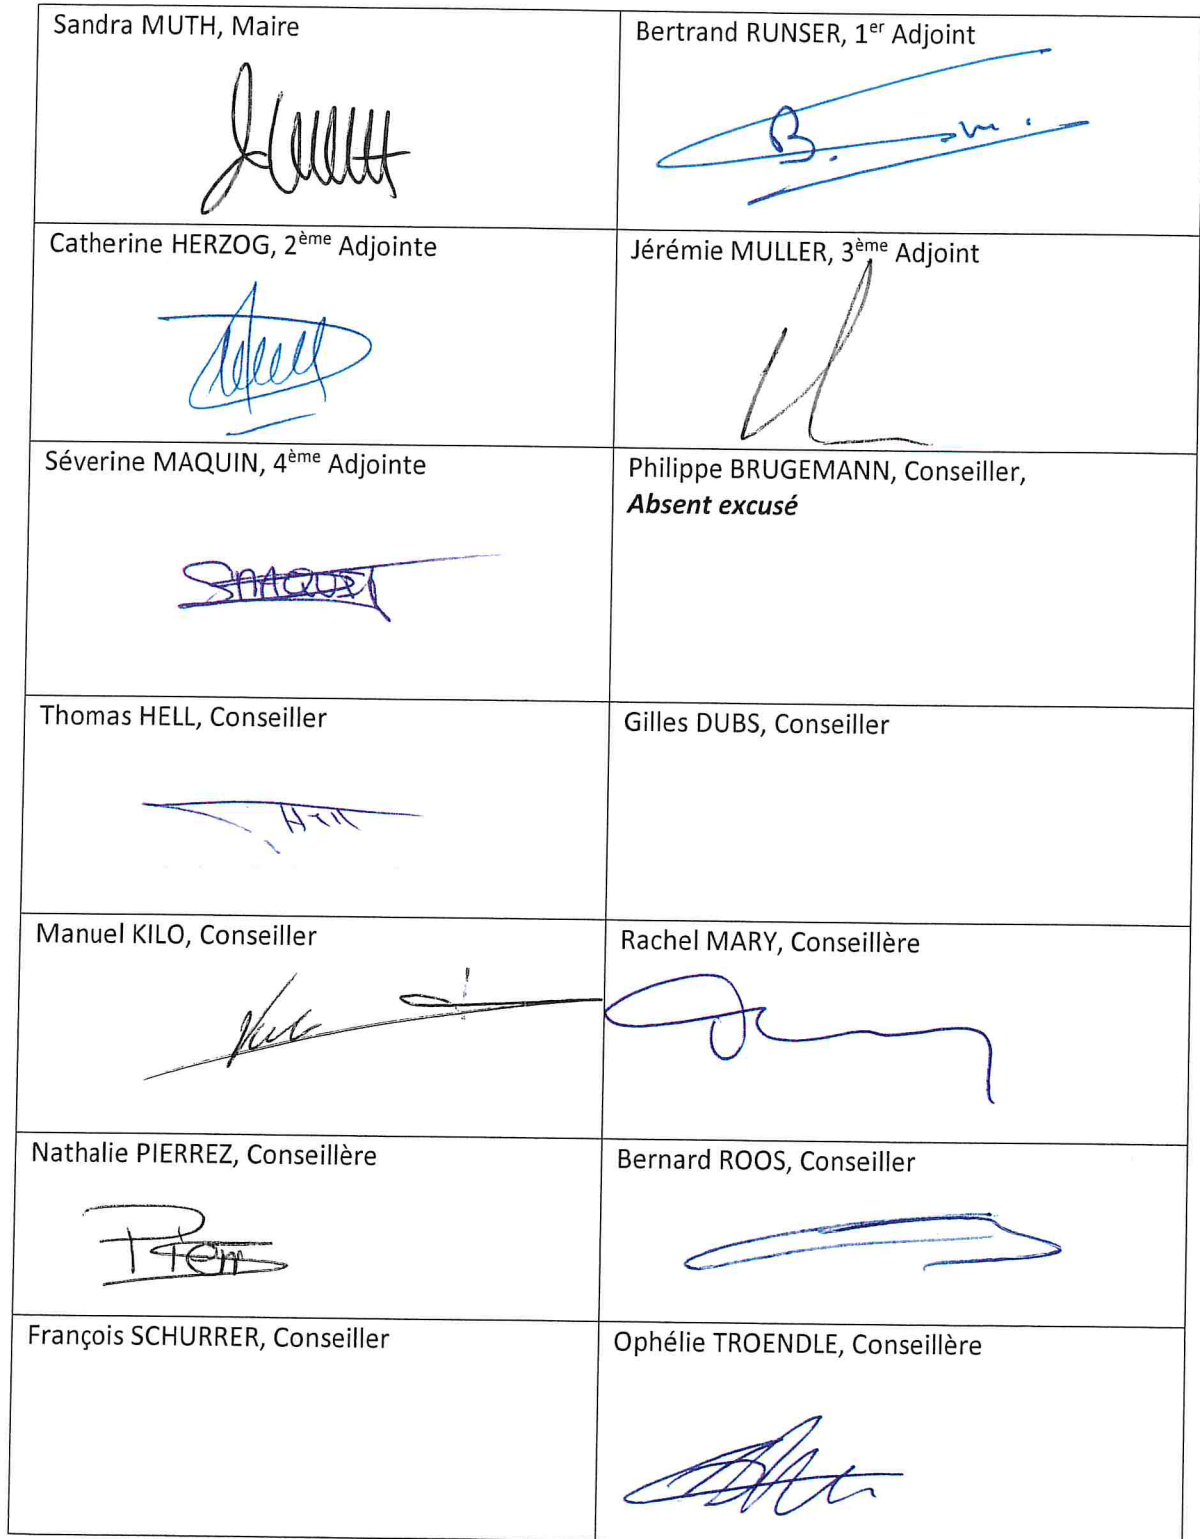 Sandra MUTH, Maire
Bertrand RUNSER, 1er Adjoint
Catherine HERZOG, 2ème Adjointe
Jérémie MULLER, 3ème Adjoint
Séverine MAQUIN, 4ème Adjointe
Philippe BRUGEMANN, Conseiller,
Absent excusé
Thomas HELL, Conseiller
Gilles DUBS, Conseiller
Manuel KILO, Conseiller
Rachel MARY, Conseillère
Nathalie PIERREZ, Conseillère
Bernard ROOS, Conseiller
François SCHURRER, Conseiller
Ophélie TROENDLE, Conseillère